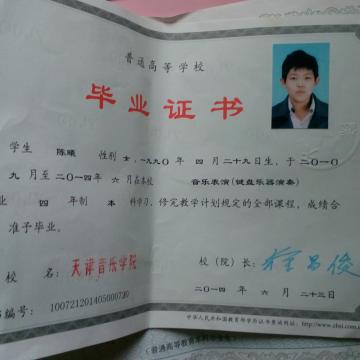 普通高等学校
毕业证书
学生 陈曦 性别 女,一九九〇年 四 月 二十九日生,于 二〇一〇
九 月至二〇一四年 六 月在本校 音乐表演(键盘乐器演奏)
业 四 年制 本 科学习,修完教学计划规定的全部课程,成绩合
准予毕业。
校 名: 天津音乐学院 校(院)长:
编号: 100721201405000730 二〇一四 年 六 月 二十三日
(普通高等教育本